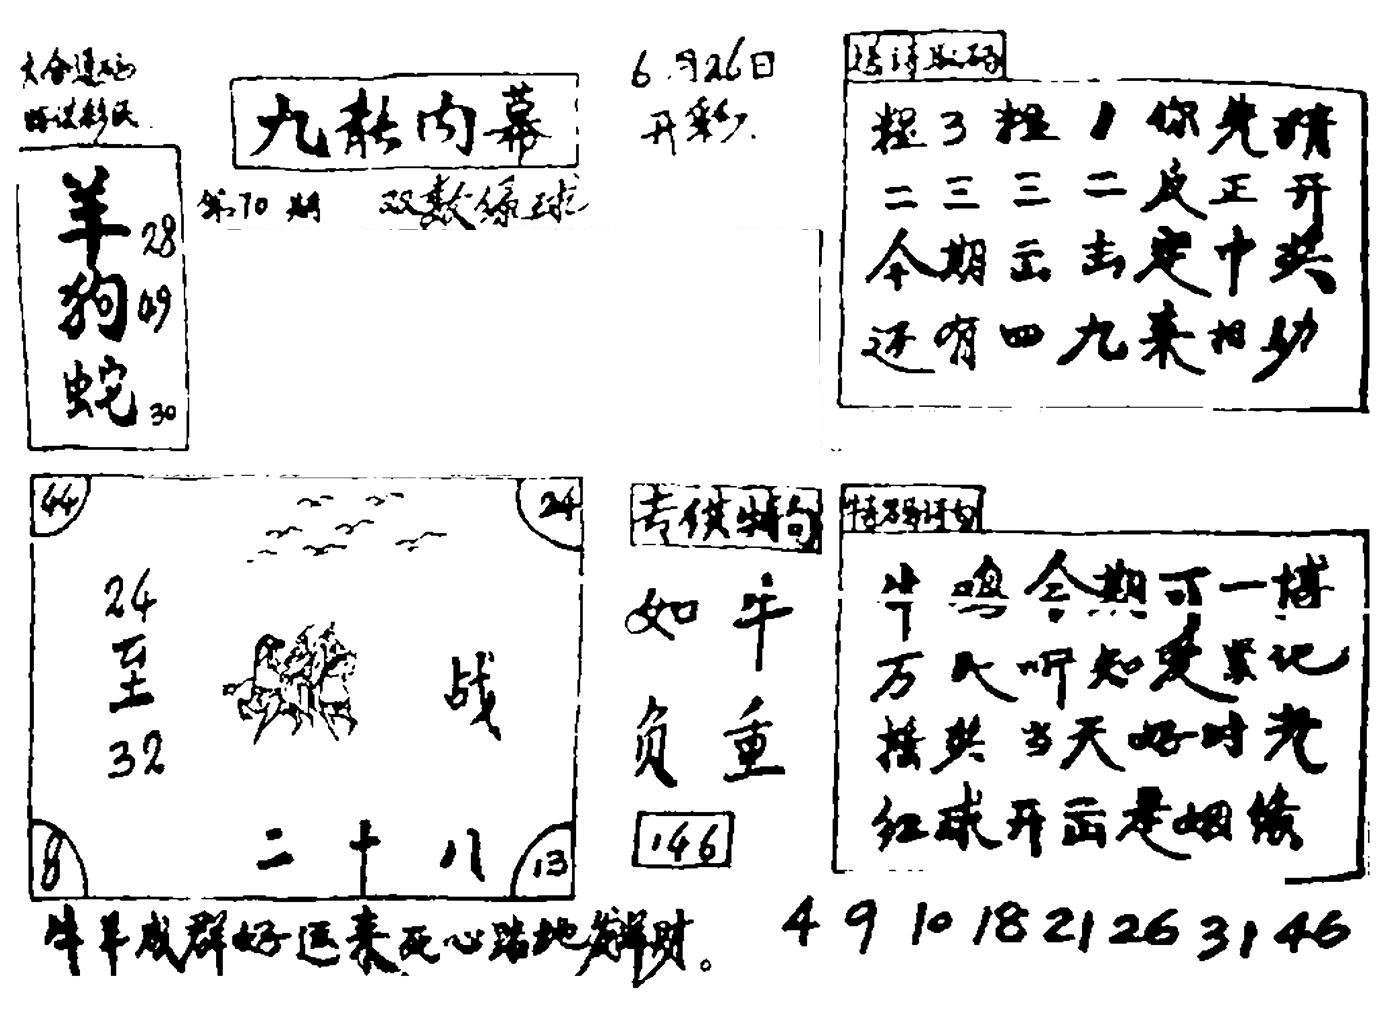 九龙内幕
第70期 双数绿球
6月26日
开彩
羊 28
狗 49
蛇 30
送诗取码
粗3粗1你先猜
二三三二反正开
今期出击定中奖
还有四九来相助
44
24
24
至
32
战
二十八
8
13
专供特句
如牛
负重
146
特码诗句
牛鸡今期可一博
万民听知要紧记
摇奖当天好时光
红球开出是姻缘
牛羊成群好运来死心踏地发洋财。
4 9 10 18 21 26 31 46